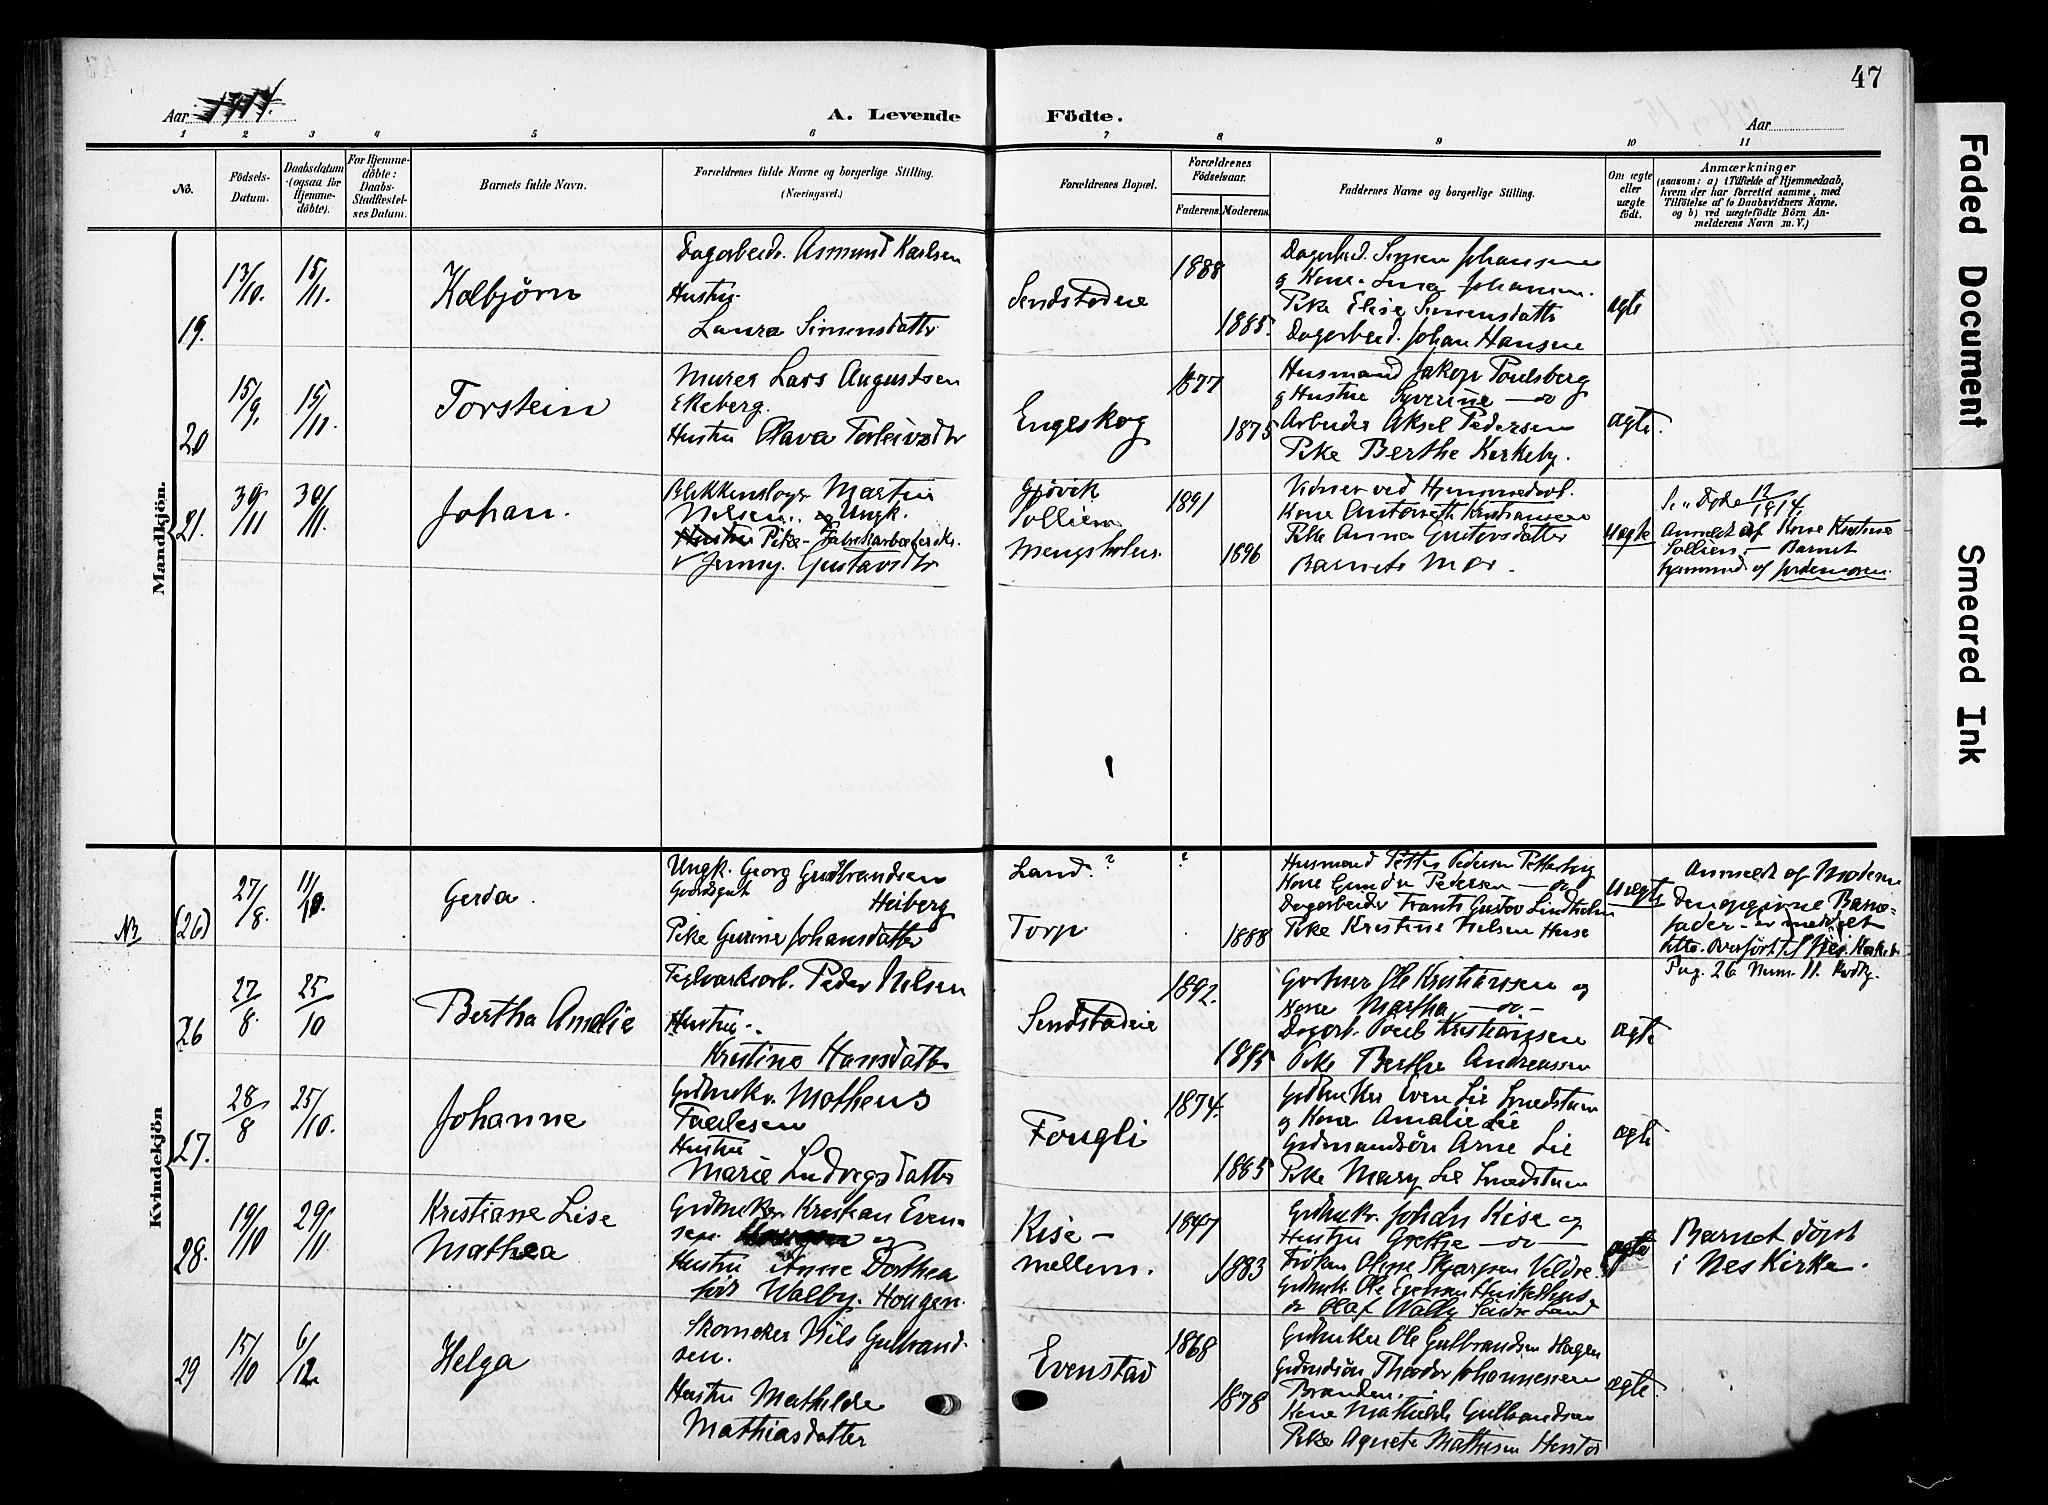 47
Aar 1914.
A. Levende Födte.
Aar
1 2 3 4 5 6 7 8 9 10 11
No.
Födsels-Datum.
Daabsdatum (ogsaa for Hjemme-döbte).
For Hjemme-döbte: Daabs-Stadfæstel-ses Datum.
Barnets fulde Navn.
Forældrenes fulde Navne og borgerlige Stilling.
(Næringsvei.)
Forældrenes Bopæl.
Forældrenes Födselsaar.
Faderens. Moderens.
Faddernes Navne og borgerlige Stilling.
Om ægte eller uægte födt.
Anmærkninger
(saasom: a) i Tilfælde af Hjemmedaab,
hvem der har forrettet samme, med
Tilföielse af to Daabsvidners Navne,
og b) ved uægtefödte Börn An-
melderens Navn m. V.)
Mandkjön.
19.
13/10.
15/11.
Kolbjörn
Dagarbeidr. Asmund Karlsen
Hustru
Laura Simensdatter
Sendstadeie
1888
1885.
Dagarbeid. Simen Johansen
og Kone Lina Johansen.
Pike Elise Simensdatter
Dagarbeid. Johan Hansen
ægte
20
15/9.
15/11.
Torstein
Murer Lars Augustsen
Ekeberg.
Hustru Olava Torleivsdtr
Engeskog
1877
1875
Husmand Jakop Poulsberg
og Hustru Syverine — do
Arbeider Aksel Pedersen
Pike Berthe Kerkeby.
ægte.
21.
30/11
30/11.
Johan.
Blikkenslager Martin
Nilsen. og Ungk.
Hustru Pike - Fabrikarbeiderske.
Jenny Gustavsdtr
Gjövik
Sollien
Mengsholm.
1891
1896
Vidner ved Hjemmedaab.
Kone Antonette Kristiansen
Pike Anna Gustavsdatter
Barnets Mor.
uægte
12/1914.
Anmeldt af Kone Kristine
Sollien. — Barnet
hjemmed. af jordemoren.
Kvindekjön
NB
(26)
27/8.
11/10.
Gerda.
Ungk. Georg Gudbrandsen
Gaardsgut Heiberg
Pike Gurine Johansdatter
Land?
Torp
?
1888
Husmand Petter Pedersen
Kone Gundr Pedersen — do
Dagarbeider Frants Gustav Lindholm
Pike Kristine Nielsen Huse
uægte
Anmeldt af Moderen
den opgivne Barne-
fader - er meddelt
dette. Overfört
Pag. 26 Num. 11. Kvdkj.
26
27/8.
25/10
Bertha Amalie
Teglverksarb. Peder Nilsen
Hustru
Kristine Hansdatter
Sendstadeie
1892.
1895
Gartner Ole Kristianssen og
Kone Martha — do -
Dagarb. Poul Kristianssen
Pike Berthe Andreassen
ægte
27.
28/8
25/10.
Johanne
Gdbruker. Matheus
Taalesen
Hustru
Marie Ludvigsdatter
Fougli
1874.
1885
Gdbruker Even Lie Smedstuen
og Kone Amalie Lie
Gdmandsön Arne Lie
Pike Mary Lie Smedstuen
ægte
28.
19/10
29/11.
Kristiane Lise
Mathea
Gdbruker Kristian Even-
sen og
Hustru Anne Dorthea
föd Walby. Hougen.
Kise -
mellem.
1847
1883
Gdbruk. Johan Kise og
Hustru Grethe — do —
Fröken Olene Skjarpsen Veldre
Gdbruk. Ole Evensen
do Olaf Walby Söndre Land
ægte
Barnet döpt
i Nes Kirke.
29
15/10
6/12
Helga
Skomaker Nils Gulbrand-
sen.
Hustru Mathilde
Mathiasdatter
Evenstad
1868
1878
Gdbruker Ole Gulbrandsen Hagen
Gdmdsön Theodor Johannesen
Branden.
Kone Mathilde Gulbrandsen
Pike Agnete Mathisen
ægte
Faded Document
Smeared Ink